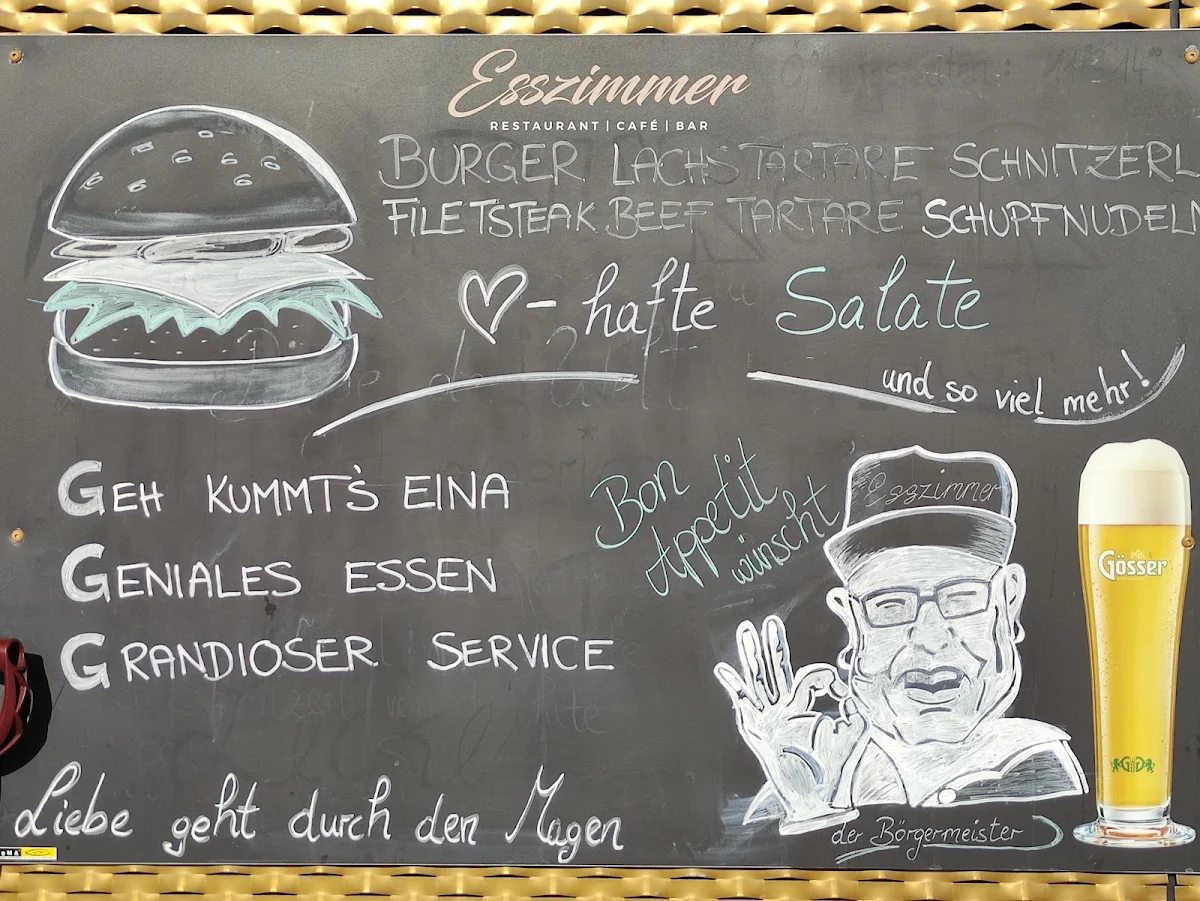 Esszimmer
RESTAURANT | CAFÉ | BAR
BURGER LACHSTARTARE SCHNITZERL
FILETSTEAK BEEF TARTARE SCHUPFNUDELN
- hafte Salate
und so viel mehr!
GEH KUMMT'S EINA
GENIALES ESSEN
GRANDIOSER SERVICE
Bon
Appetit
wünscht
Esszimmer
Gösser
der Börgermeister
Liebe geht durch den Magen